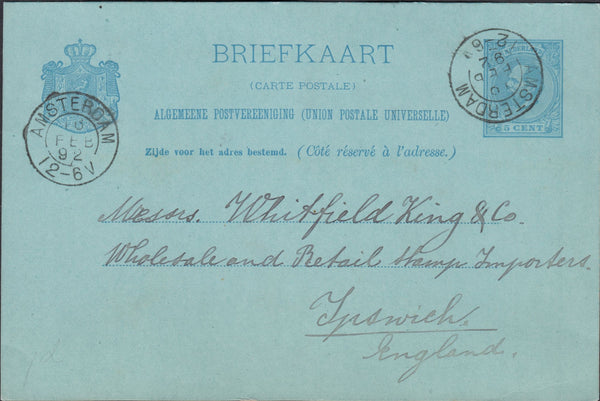 BRIEFKAART
(CARTE POSTALE)
ALGEMEENE POSTVEREENIGING (UNION POSTALE UNIVERSELLE)
Zijde voor het adres bestemd. (Côté réservé à l'adresse.)
AMSTERDAM
FEB
92
12-6V
AMSTERDAM
5 CENT
Messrs. Whitfield King & Co.
Wholesale and Retail Stamp Importers.
Ipswich.
England.